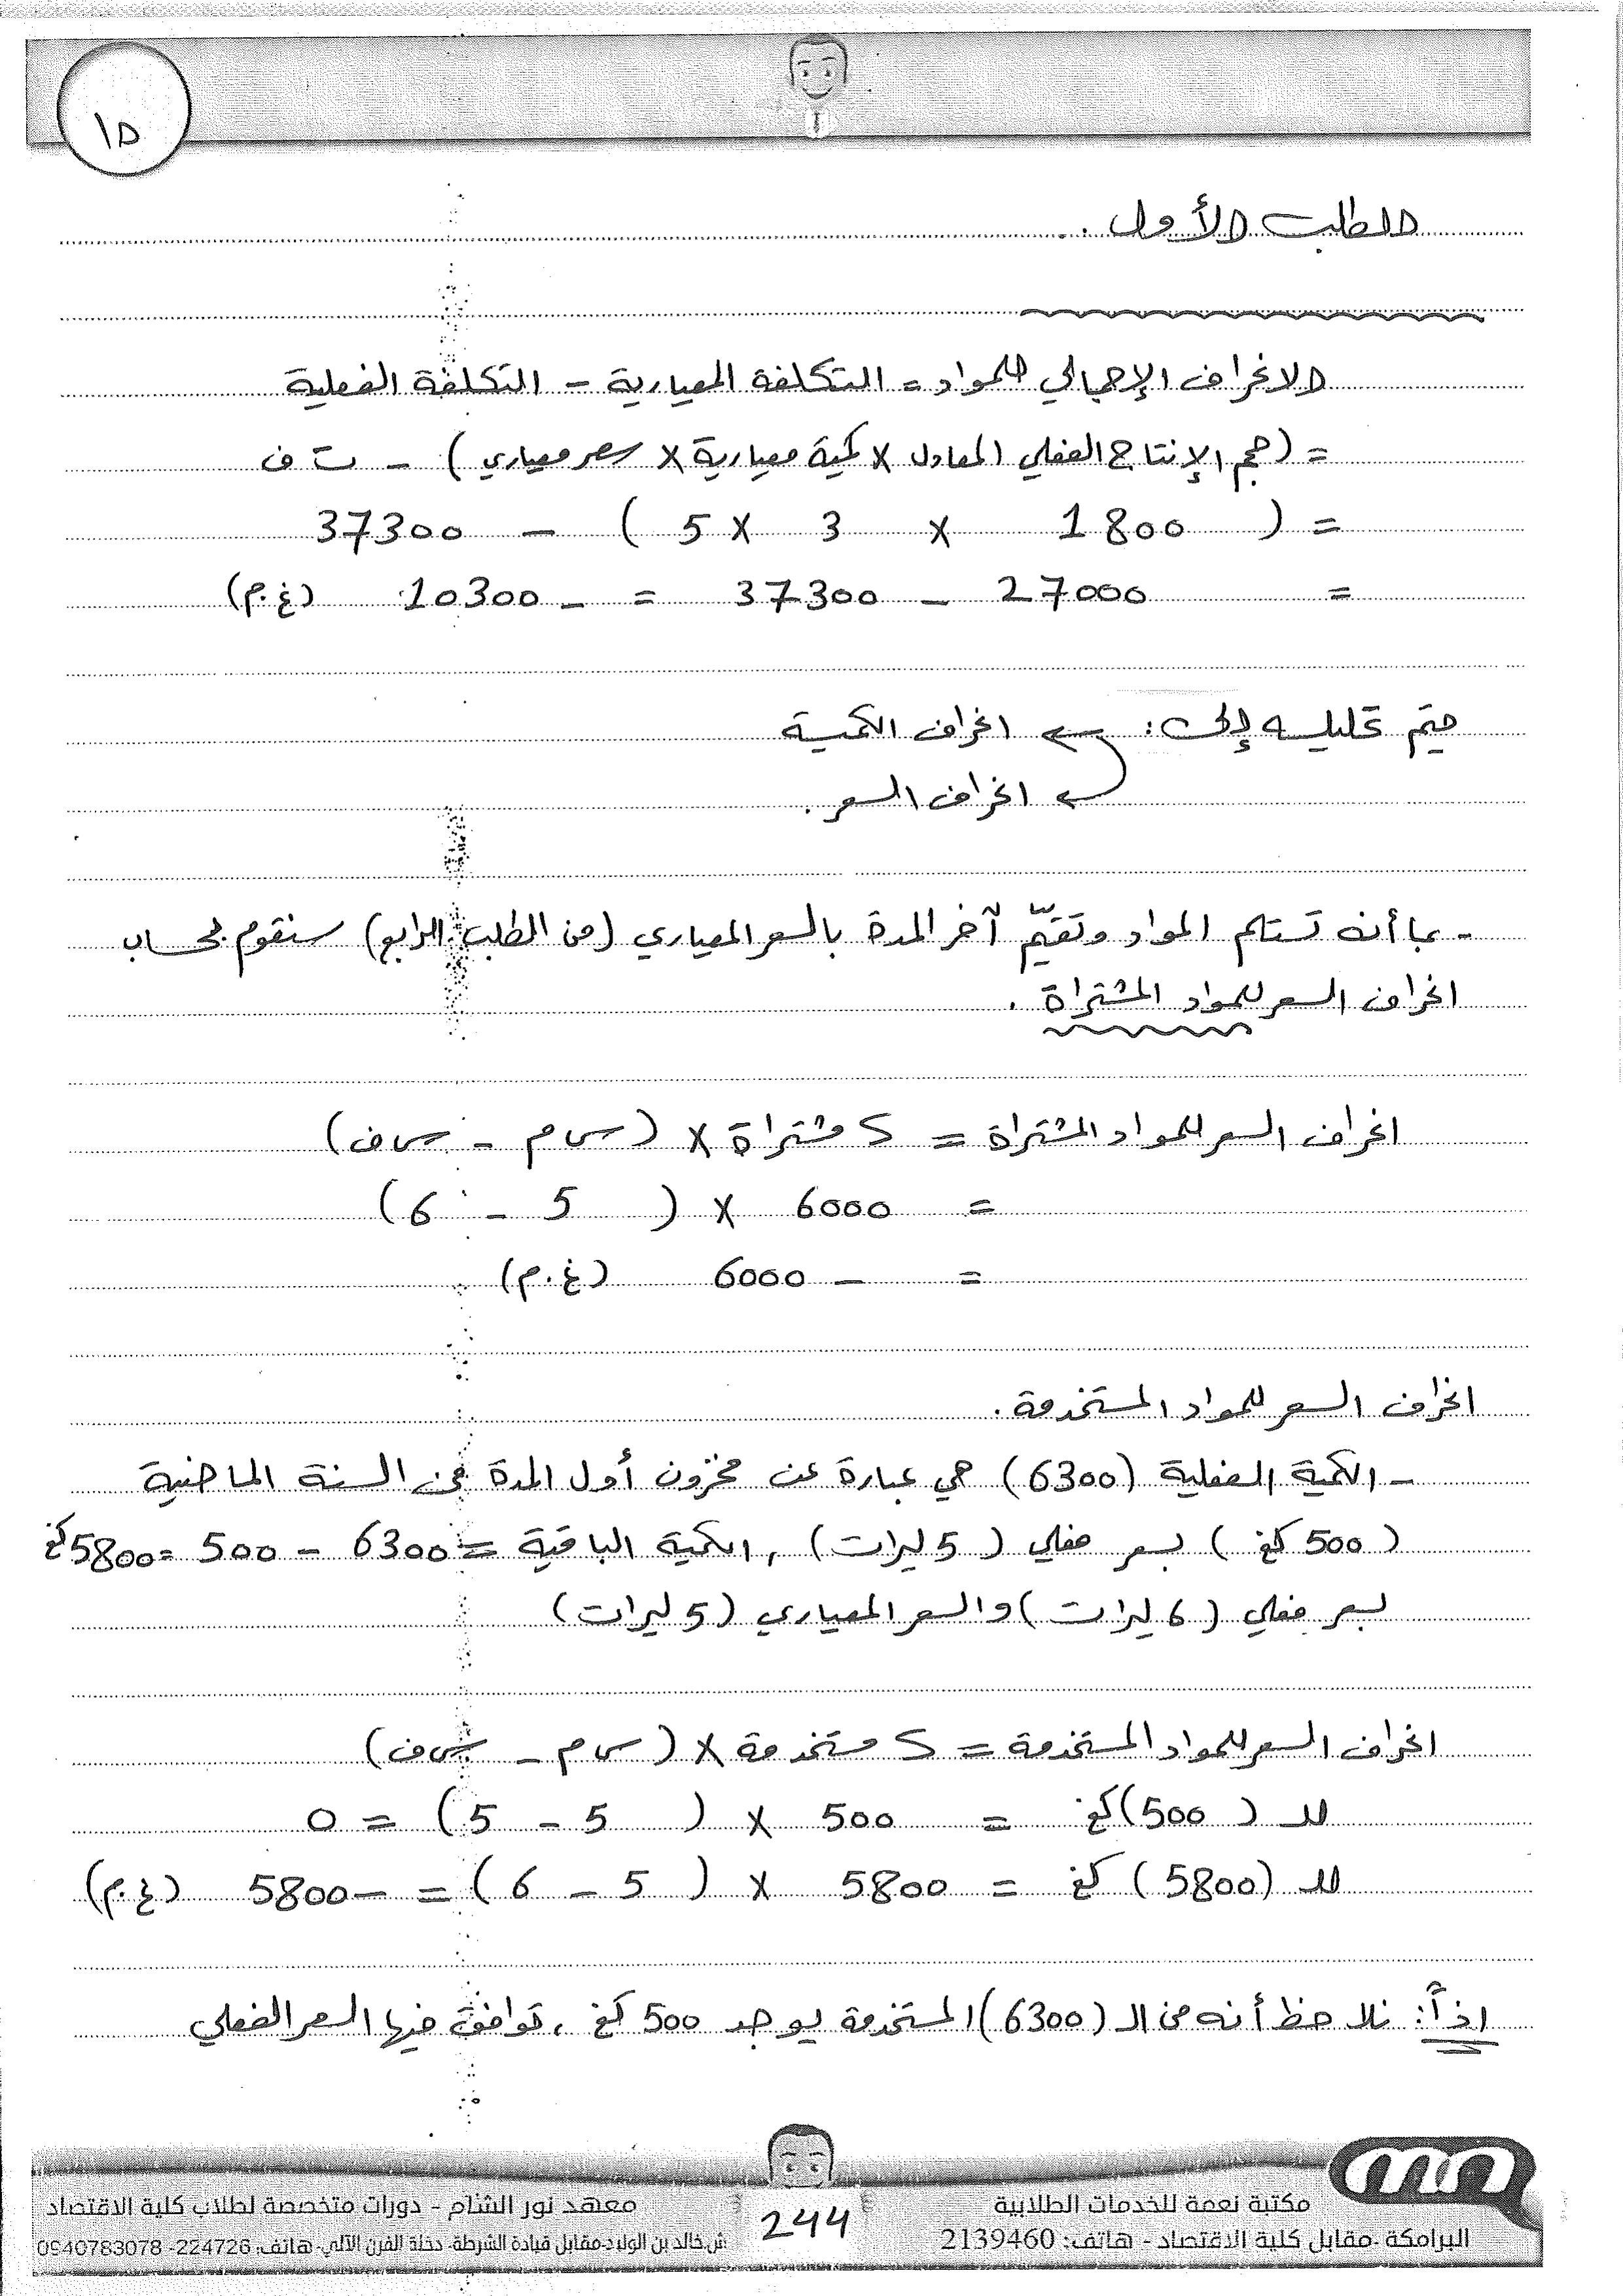 ١٥
الطلب الأول :
الانحراف الإجمالي للمواد = التكلفة المعيارية - التكلفة الفعلية
= (حجم الإنتاج الفعلي المعادل × كمية معيارية × سعر معياري) - ت ف
= ( 1800 × 3 × 5 ) - 37300
= 27000 - 37300 = - 10300 (غ.م)
يتم تحليله إلى: ← انحراف الكمية
← انحراف السعر .
- بما أنه تستلم المواد وتقيّم آخر المدة بالسعر المعياري (من الطلب الرابع) سنقوم بحساب
انحراف السعر للمواد المشتراة .
انحراف السعر للمواد المشتراة = ك مشتراة × (س م - س ف)
= 6000 × ( 5 - 6 )
= - 6000 (غ.م)
انحراف السعر للمواد المستخدمة .
- الكمية الفعلية (6300) هي عبارة عن مخزون أول المدة من السنة الماضية
(500 كغ) بسعر فعلي (5 ليرات) ، الكمية الباقية = 6300 - 500 = 5800 كغ
بسعر فعلي (6 ليرات) والسعر المعياري (5 ليرات)
انحراف السعر للمواد المستخدمة = ك مستخدمة × (س م - س ف)
للـ (500) كغ = 500 × ( 5 - 5 ) = 0
للـ (5800) كغ = 5800 × ( 5 - 6 ) = - 5800 (غ.م)
اذاً: نلاحظ أنه من الـ (6300) المستخدمة يوجد 500 كغ ، توافق فيها السعر الفعلي
مكتبة نعمة للخدمات الطلابية
البرامكة -مقابل كلية الاقتصاد - هاتف: 2139460
244
معهد نور الشام - دورات متخصصة لطلاب كلية الاقتصاد
ش.خالد بن الوليد-مقابل قيادة الشرطة- دخلة الفرن الآلي- هاتف: 224726- 0940783078